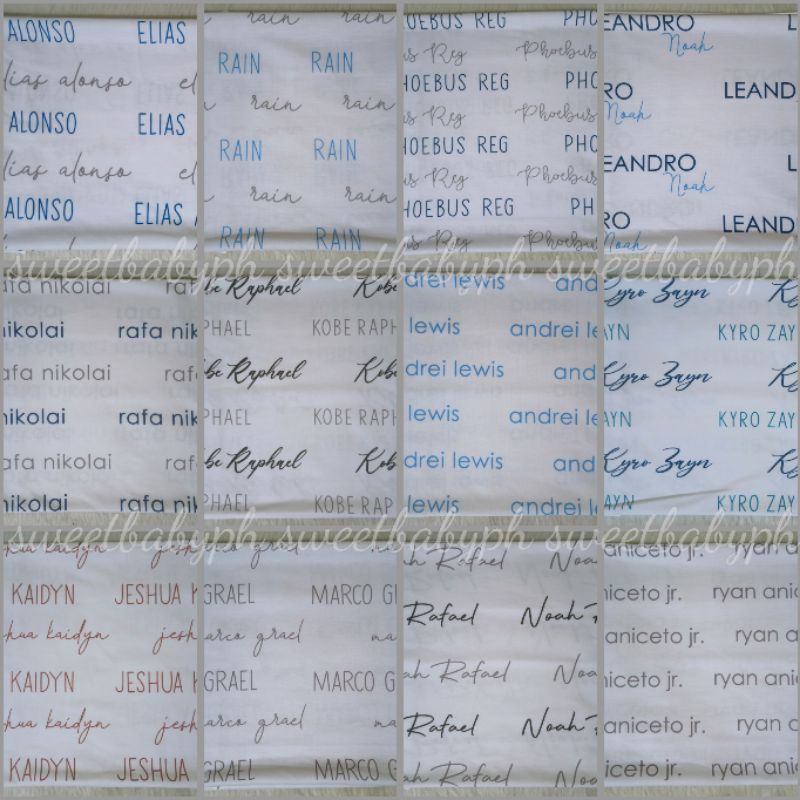 ALONSO ELIAS
lias alonso el
ALONSO ELIAS
lias alonso el
ALONSO ELIAS
rain rain
RAIN RAIN
rain rain
RAIN RAIN
rain rain
RAIN RAIN
PHOEBUS REG PHO
us Reg Phoebus
HOEBUS REG PHO
us Reg Phoebus
HOEBUS REG PHO
us Reg Phoebus
HOEBUS REG PH
us Reg Phoebus
EANDRO L
Noah
RO LEAND
Noah
EANDRO L
Noah
RO LEAND
Noah
sweetbabyph sweetbabyph sweetbabyph
rafa nikolai rafa
nikolai rafa nik
afa nikolai rafa
nikolai rafa nik
afa nikolai rafa
nikolai rafa nik
be Raphael Kobe
PHAEL KOBE RAPH
be Raphael Kobe
PHAEL KOBE RAPH
be Raphael Kobe
PHAEL KOBE RAP
drei lewis and
lewis andrei le
drei lewis and
lewis andrei le
drei lewis and
lewis andrei le
Kyro Zayn Ky
AYN KYRO ZAY
Kyro Zayn Ky
AYN KYRO ZAY
Kyro Zayn Ky
AYN KYRO ZAY
sweetbabyph sweetbabyph sweetbabyph
hua kaidyn jesh
KAIDYN JESHUA K
hua kaidyn jesh
KAIDYN JESHUA K
hua kaidyn jesh
KAIDYN JESHUA
arco grael
GRAEL MARCO G
arco grael ma
GRAEL MARCO G
arco grael ma
GRAEL MARCO G
ah Rafael Noa
Rafael Noah
ah Rafael Noa
Rafael Noah
ah Rafael Noa
aniceto jr. ryan a
niceto jr. ryan anic
aniceto jr. ryan a
niceto jr. ryan anic
aniceto jr. ryan a
niceto jr. ryan anic